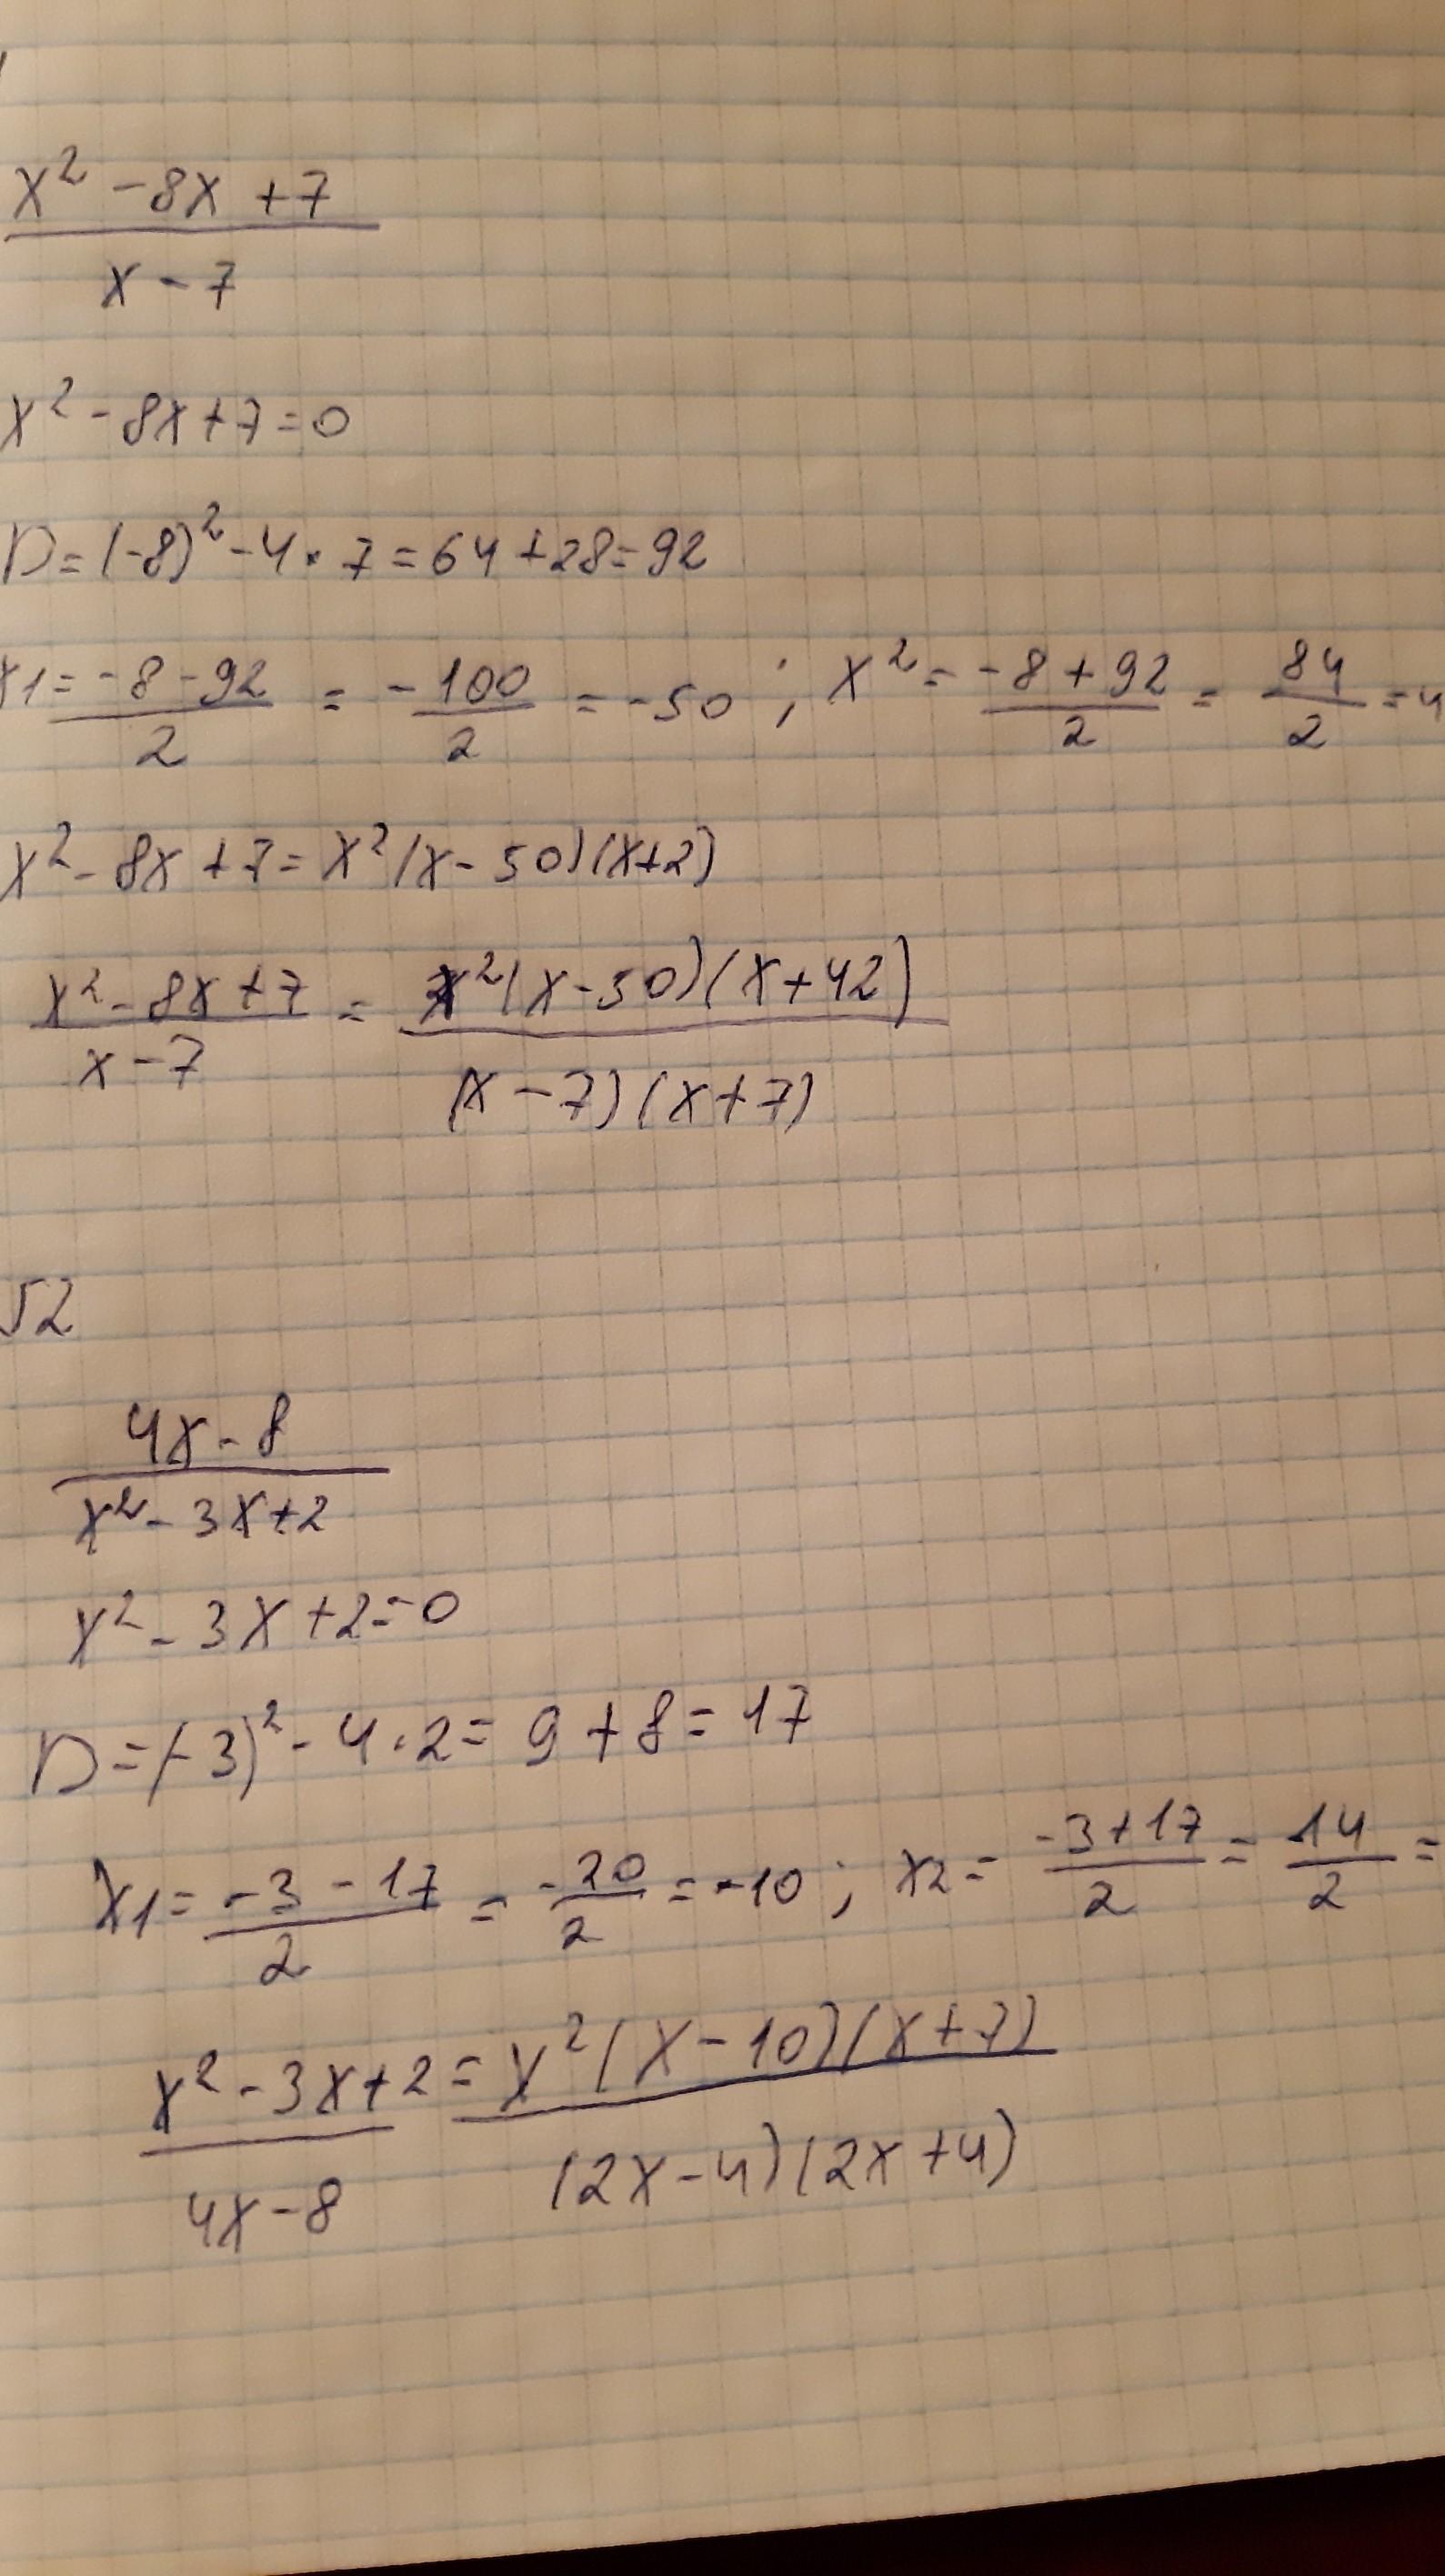 x² - 8x + 7
x - 7
x² - 8x + 7 = 0
D = (-8)² - 4 · 7 = 64 + 28 = 92
x1 = -8 - 92 / 2 = - 100 / 2 = -50 ; x² = -8 + 92 / 2 = 84 / 2 = 4
x² - 8x + 7 = x² (x - 50) (x + 2)
x² - 8x + 7 / x - 7 = x² (x - 50) (x + 42) / (x - 7) (x + 7)
√2
4x - 8
x² - 3x + 2
x² - 3x + 2 = 0
D = (-3)² - 4 · 2 = 9 + 8 = 17
x1 = -3 - 17 / 2 = -20 / 2 = -10 ; x2 = -3 + 17 / 2 = 14 / 2 =
x² - 3x + 2 / 4x - 8 = x² (x - 10) (x + 7) / (2x - 4) (2x + 4)